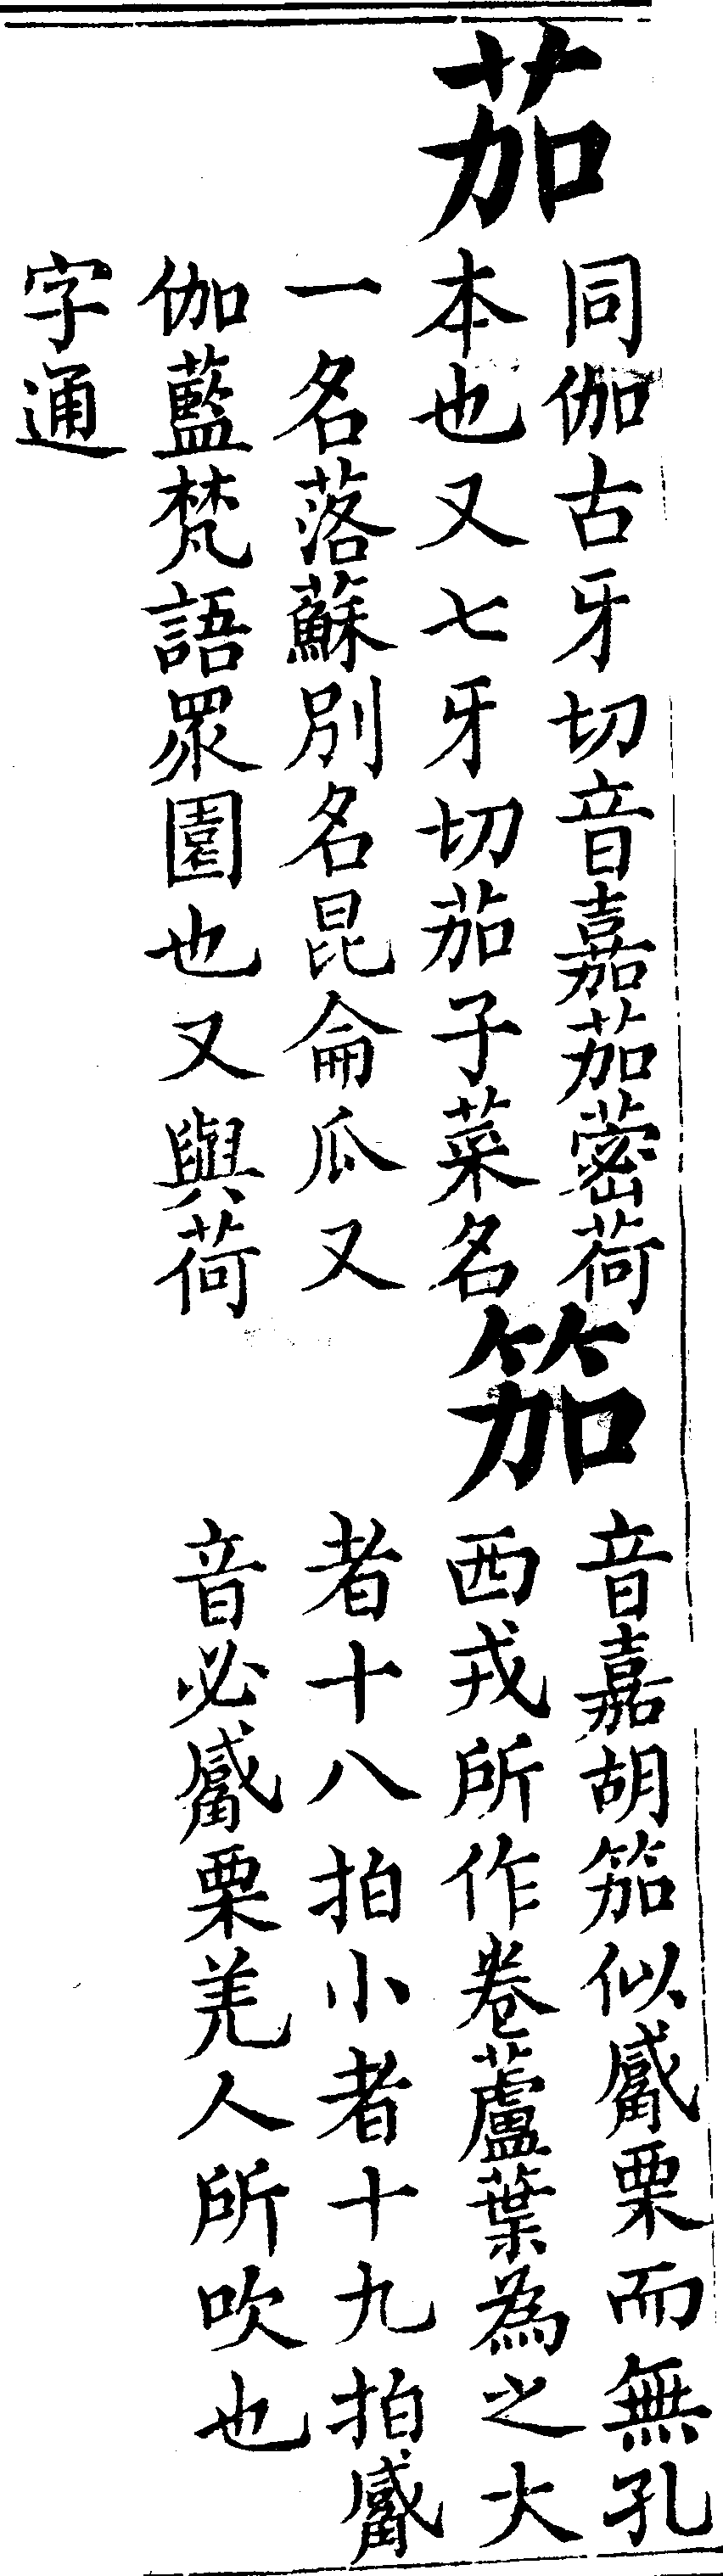 茄
同伽古牙切音嘉茄蔤荷
本也又七牙切茄子菜名
一名落蘇別名昆侖瓜又
伽藍梵語眾園也又與荷
字通
笳
音嘉胡笳似觱栗而無孔
西戎所作卷蘆葉為之大
者十八拍小者十九拍觱
音必觱栗羌人所吹也